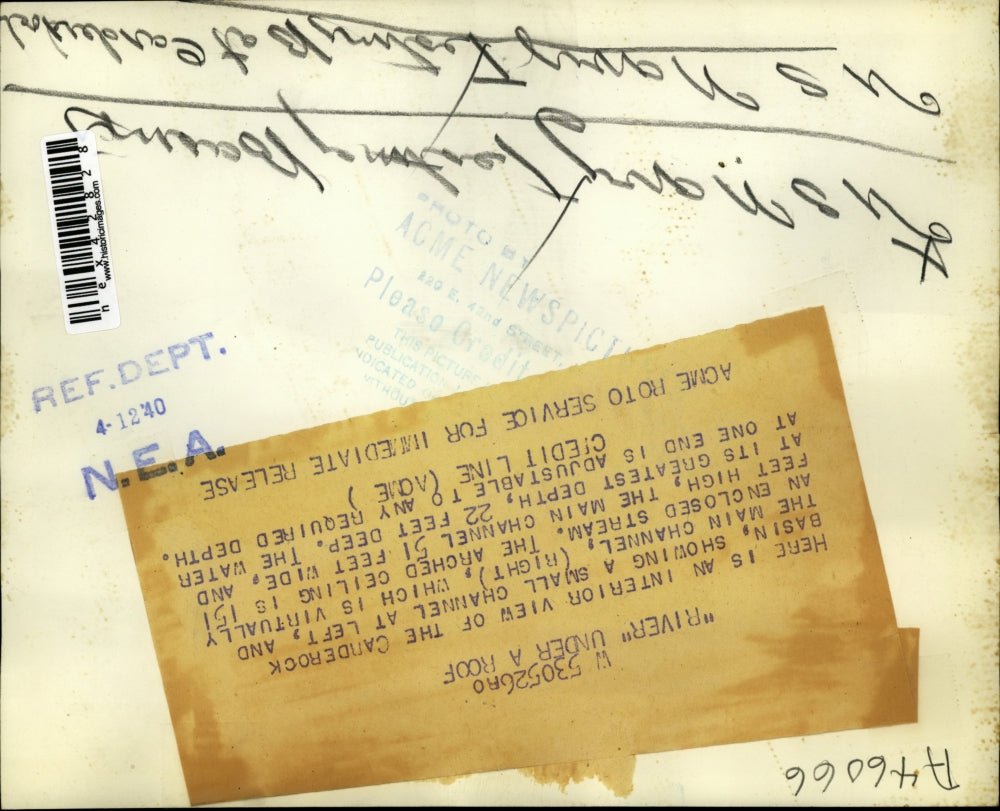 A46066
W 530526RO
"RIVER" UNDER A ROOF
HERE IS AN INTERIOR VIEW OF THE CARDEROCK
BASIN, SHOWING A SMALL CHANNEL AT LEFT, AND
THE MAIN CHANNEL, (RIGHT), WHICH IS VIRTUALLY
AN ENCLOSED STREAM. THE ARCHED CEILING IS 151
FEET HIGH, THE MAIN CHANNEL 51 FEET WIDE, AND
AT ITS GREATEST DEPTH, 22 FEET DEEP. THE WATER
AT ONE END IS ADJUSTABLE TO ANY REQUIRED DEPTH.
CREDIT LINE (ACME)
ACME ROTO SERVICE FOR IMMEDIATE RELEASE
X U S Navy Testing Basins
U S Navy Testing B at
PHOTO BY
ACME NEWSPICT
220 E. 42nd STREET
Please Credit
THIS PICTURE
PUBLICATION
WITHOUT
REF. DEPT.
4-12'40
N.E.A.
nex42828
www.historicimages.com